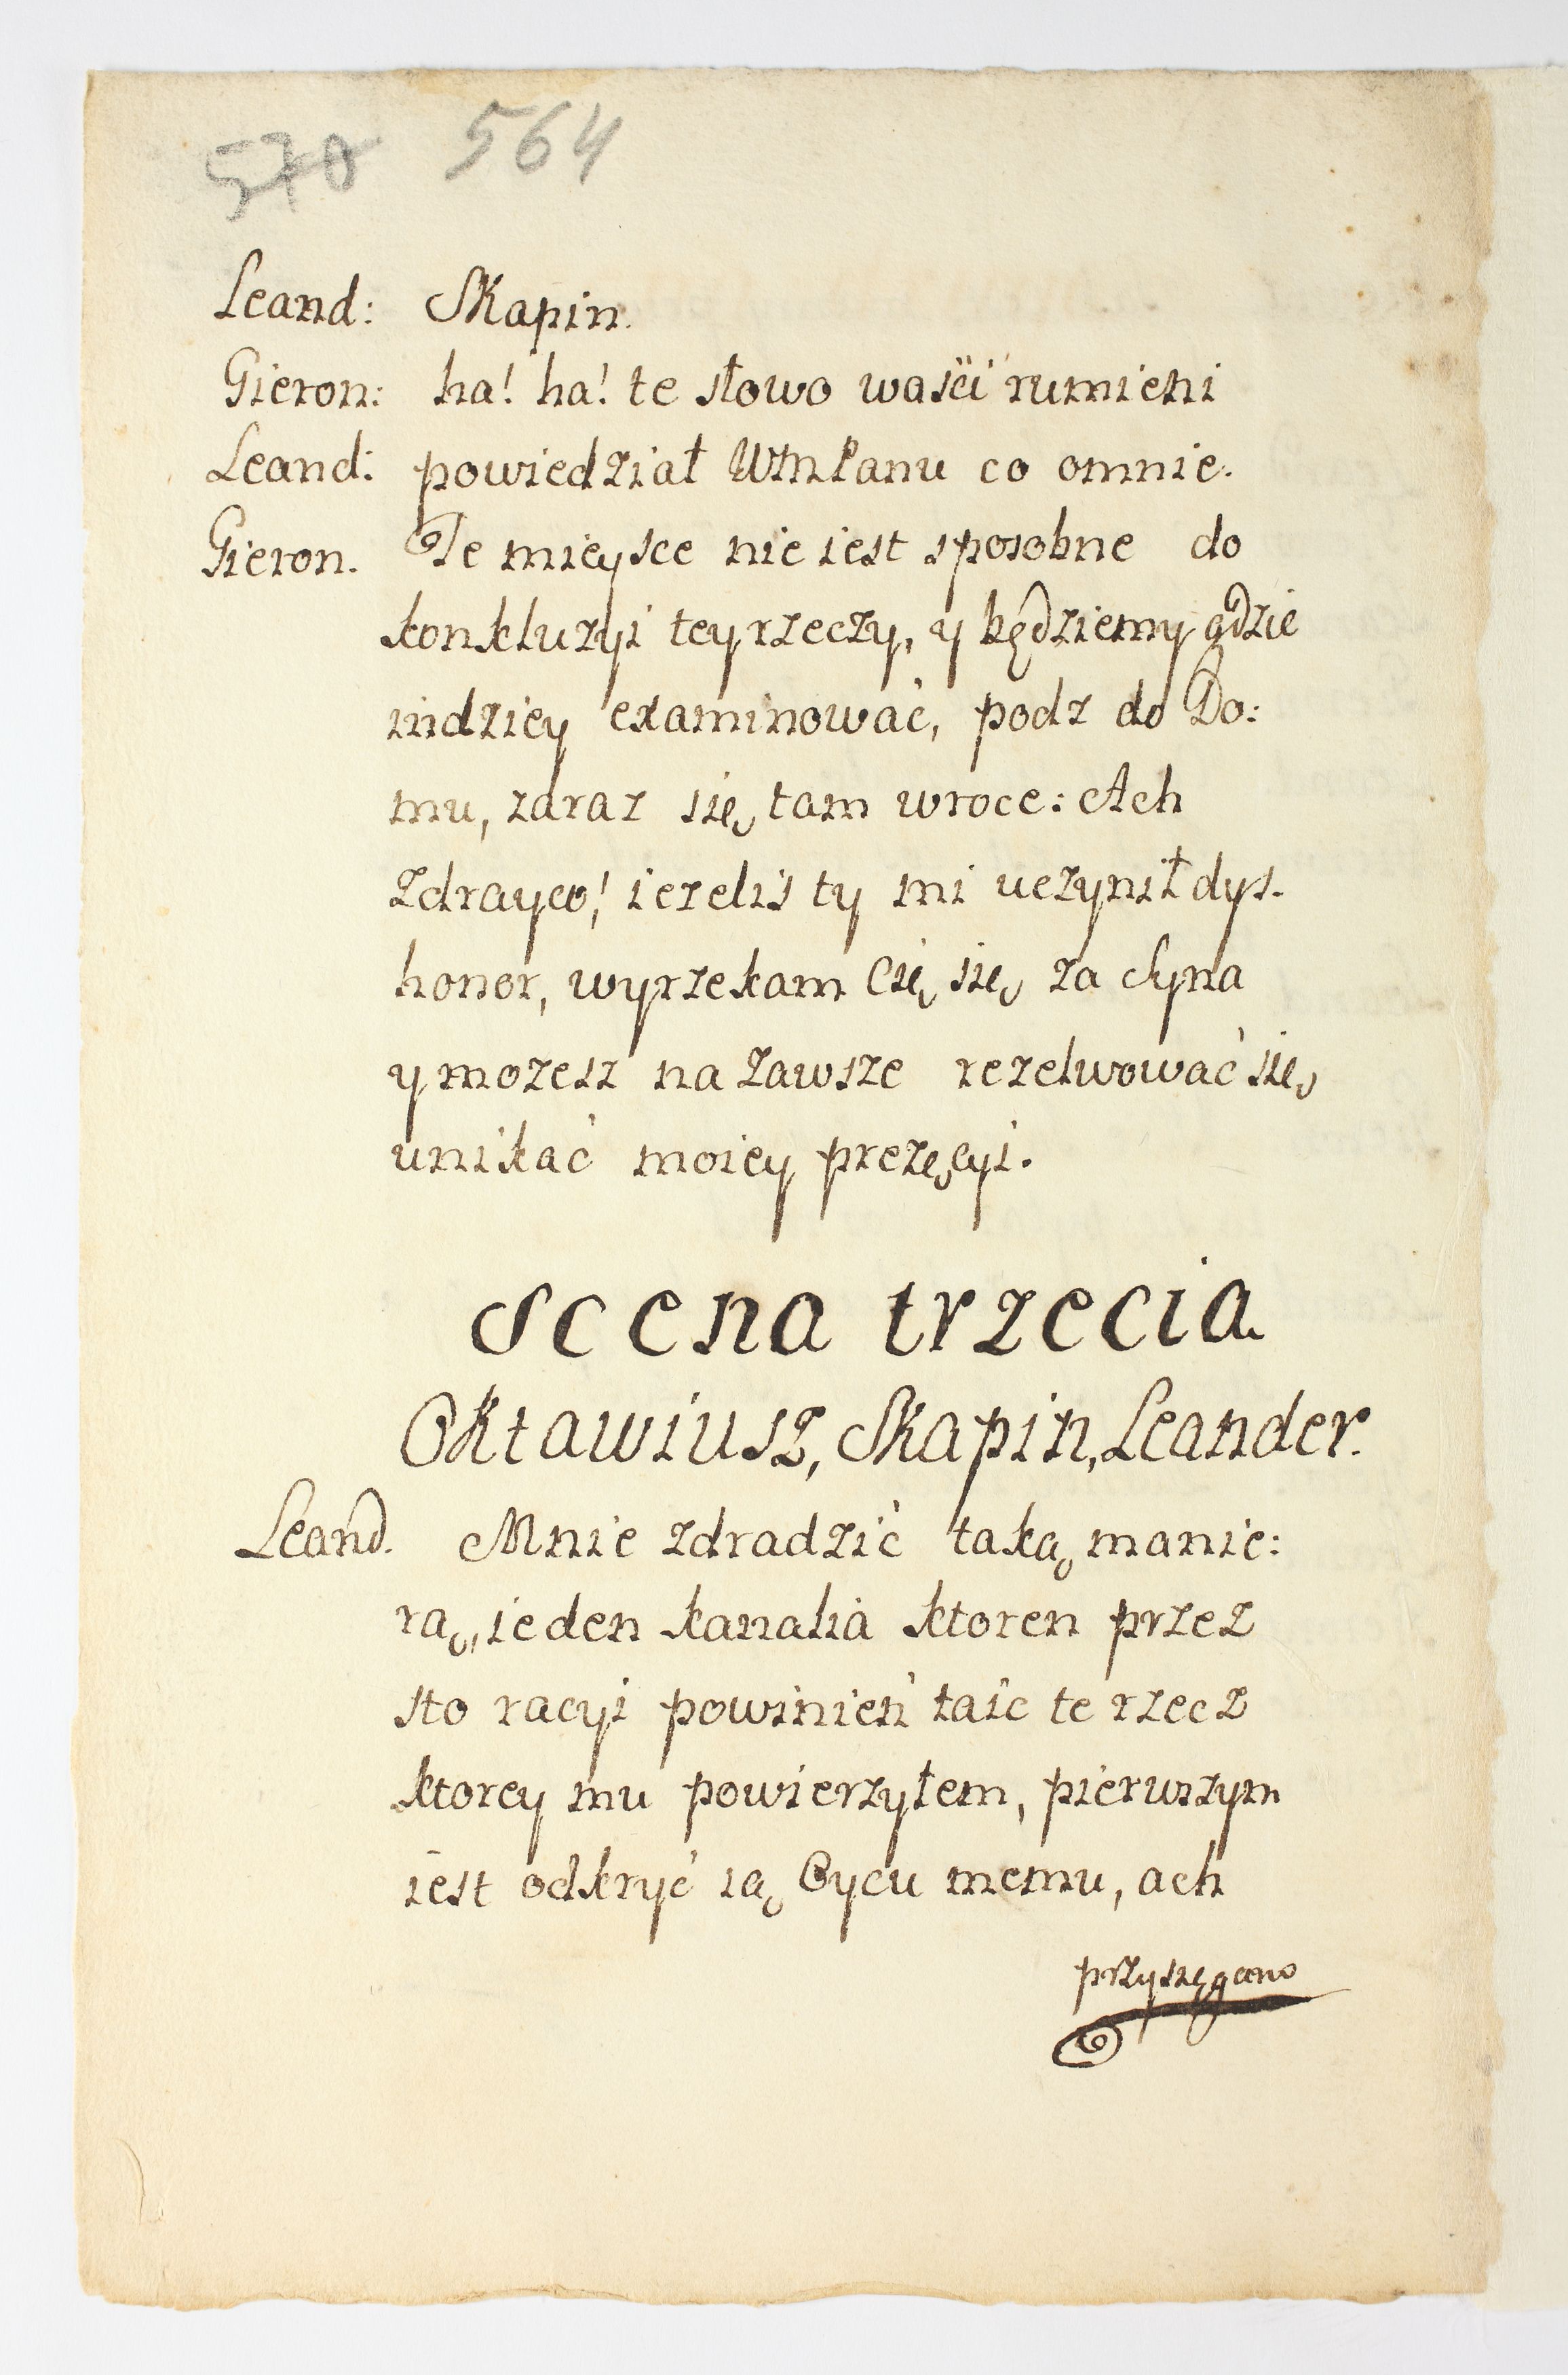 570 564
Leand: Skapin.
Gieron: ha! ha! te słowo waści rumieni
Leand: powiedział WMPanu co omnie.
Gieron. Te mieysce nie iest sposobne do
konkluzyi tey rzeczy, y będziemy gdzie
indziey examinować, podz do Do:
mu, zaraz się tam wroce: Ach
Zdrayco! iezeliś ty mi uczynił dys-
honor, wyrzekam Cię się za Syna
y mozesz na zawsze rezelwować się
unikać moiey prezęcyi.
Scena trzecia.
Oktawiusz, Skapin, Leander.
Leand. Mnie zdradzić taką manie:
rą, ieden kanalia ktoren przez
sto racyi powinień taic te rzecz
ktorey mu powierzyłem, pierwszym
iest odkryć ią Oycu memu, ach
przyszęgano